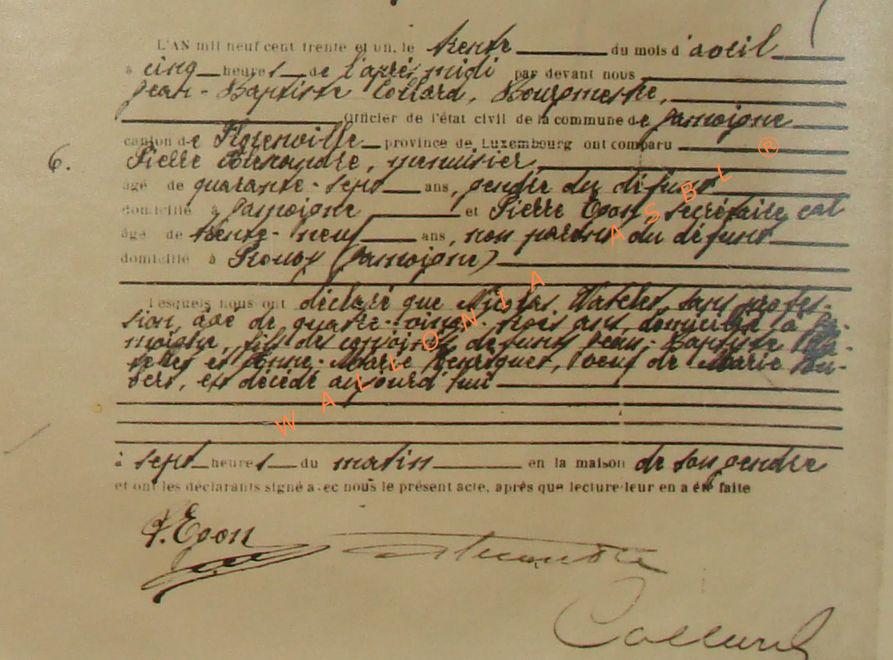 L'AN mil neuf cent trente et un, le trente du mois d'avril
à cinq heures de l'après midi par devant nous
Jean-Baptiste Collard, Bourgmestre,
Officier de l'état civil de la commune de Jamoigne
canton de Florenville province de Luxembourg ont comparu
6. Pierre Alexandre, menuisier,
âgé de quarante-sept ans, gendre du défunt
domicilié à Jamoigne et Pierre Egon, secrétaire cal
âgé de trente-neuf ans, non parent du défunt
domicilié à Prouvy (Jamoigne)
lesquels nous ont déclaré que Nicolas Watelet, sans profes-
sion, âgé de quatre-vingt trois ans, domicilié à Ja-
moigne, fils des conjoints défunts Jean-Baptiste Wa-
telet et Anne-Marie Henriquet, veuf de Marie
est décédé aujourd'hui
à sept heures du matin en la maison de son gendre
et ont les déclarants signé avec nous le présent acte, après que lecture leur en a été faite
P. Egon
Alexandre
Collard
WALLONIA ASBL ®